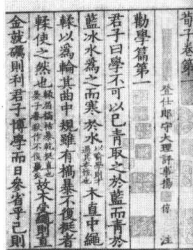 荀子卷第
登仕郎守大理評事楊倞注
勸學篇第一
君子曰學不可以已青取之於藍而青於
藍冰水為之而寒於水以喻學則才過其本性也木直中繩
輮以為輪其曲中規雖有槁暴不復挺者
輮使之然也故木受繩則直
金就礪則利君子博學而日參省乎己則